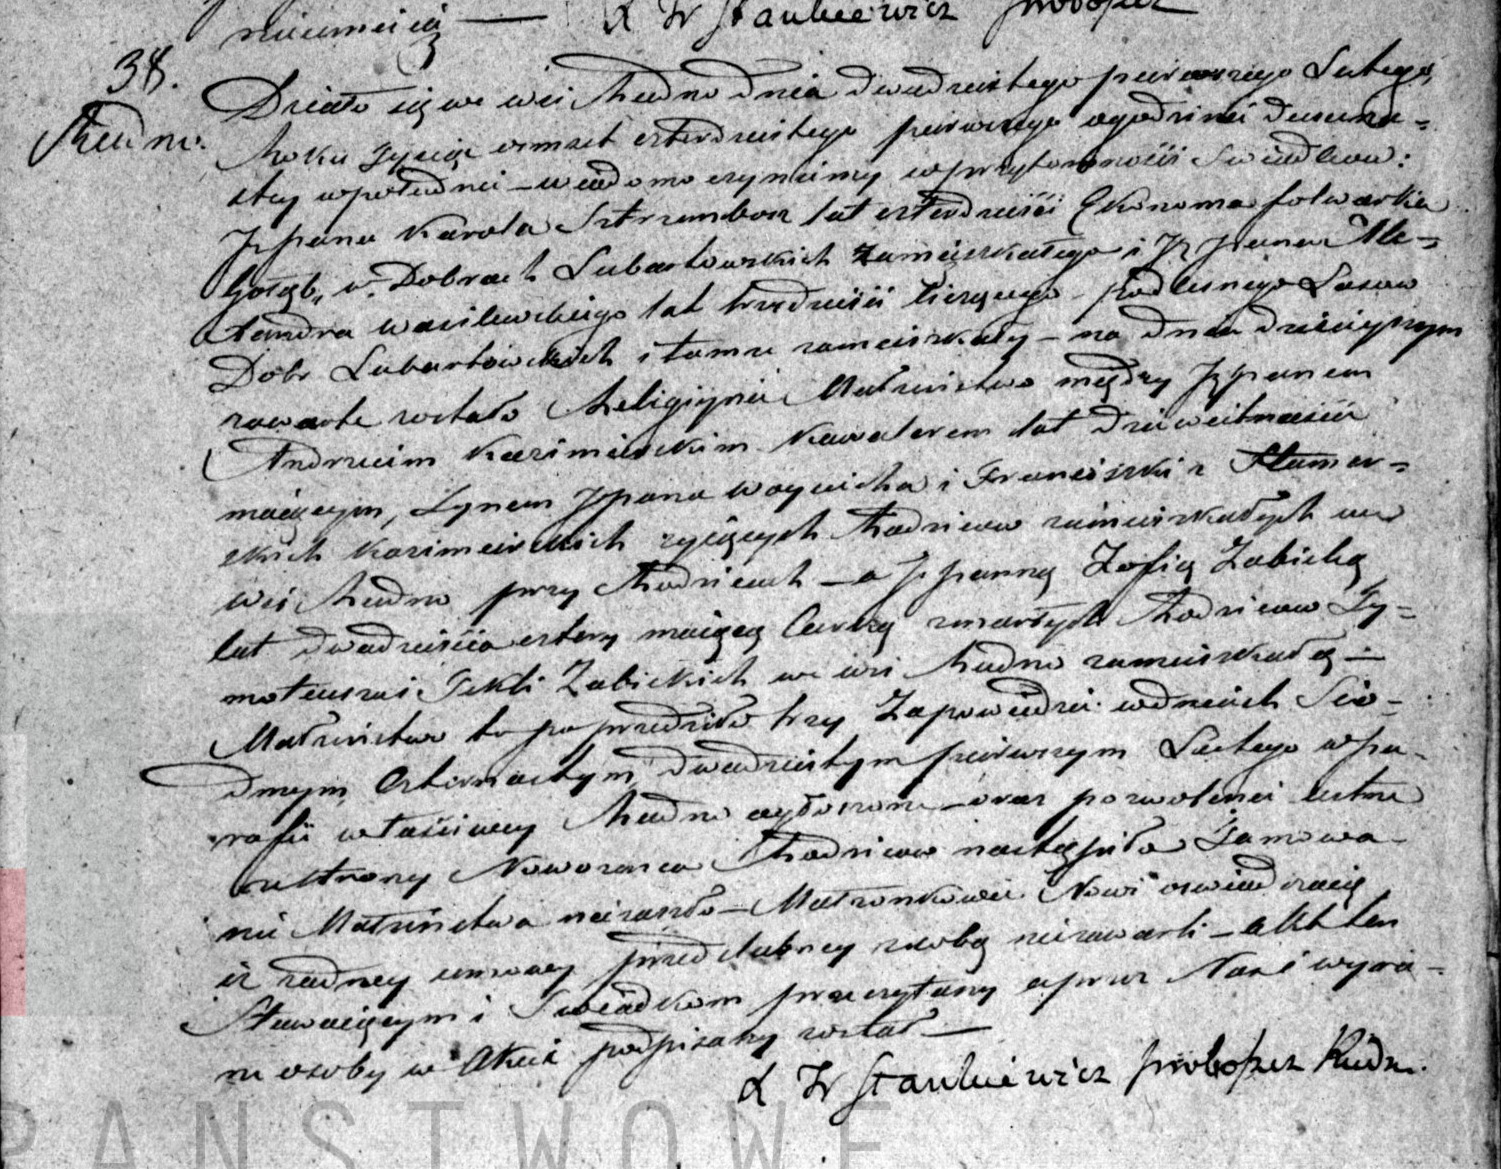 nieumieią — X W Stankiewicz proboszcz
38.
Rudno.
Działo się we wsi Rudno dnia dwudziestego pierwszego Lutego,
Roku Tysiąc ośmset czterdziestego pierwszego o godzinie dwuna-
stey w południe — wiadomo czyniemy w przytomności Swiadków:
JPana Karola Sztrembosz lat czterdzieści Ekonoma folwarku
Gołąb, w Dobrach Lubartowskich zamieszkałego i JPana Ale-
xandra Wasilewskiego lat trzydzieści liczącego podlesnego Lasow
Dobr Lubartowskich i tamze zamieszkały — na dniu dzisieyszym
zawarte zostało Religiyne Małzeństwo między JPanem
Andrzeiem Kazimierskim Kawalerem lat dziewietnascie
maiącym, Synem JPana Woyciecha i Franciszki z
Kazimierskich zyiących Rodzicow zamieszkałych we
wsi Rudno przy Rodzicach — a JPanną Zofią Zabicką
lat dwadzieścia cztery maiącą Corką zmarłych Rodzicow Ty-
moteusza i Tekli Zabickich we wsi Rudno zamieszkałą —
Małzeństwo to poprzedziło trzy Zapowiedzi w dniach Sio-
dmym, Czternastym, dwudziestym pierwszym Lutego w pa-
rafii właściwey Rudno ogłoszone — oraz pozwolenie ustne
ze strony Nowozenca Rodzicow nastąpiło Tamowa-
nie Małzeństwa niezaszło — Małzonkowie Nowi oswiadczaią
iz zadney umowy przedslubney z sobą niezawarli — Akt ten
Stawaiącym i Swiadkom przeczytany a przez Nas i wyra-
ne osoby w Akcie podpisany został —
X W Stankiewicz proboszcz Rudn.
PANSTWOWE